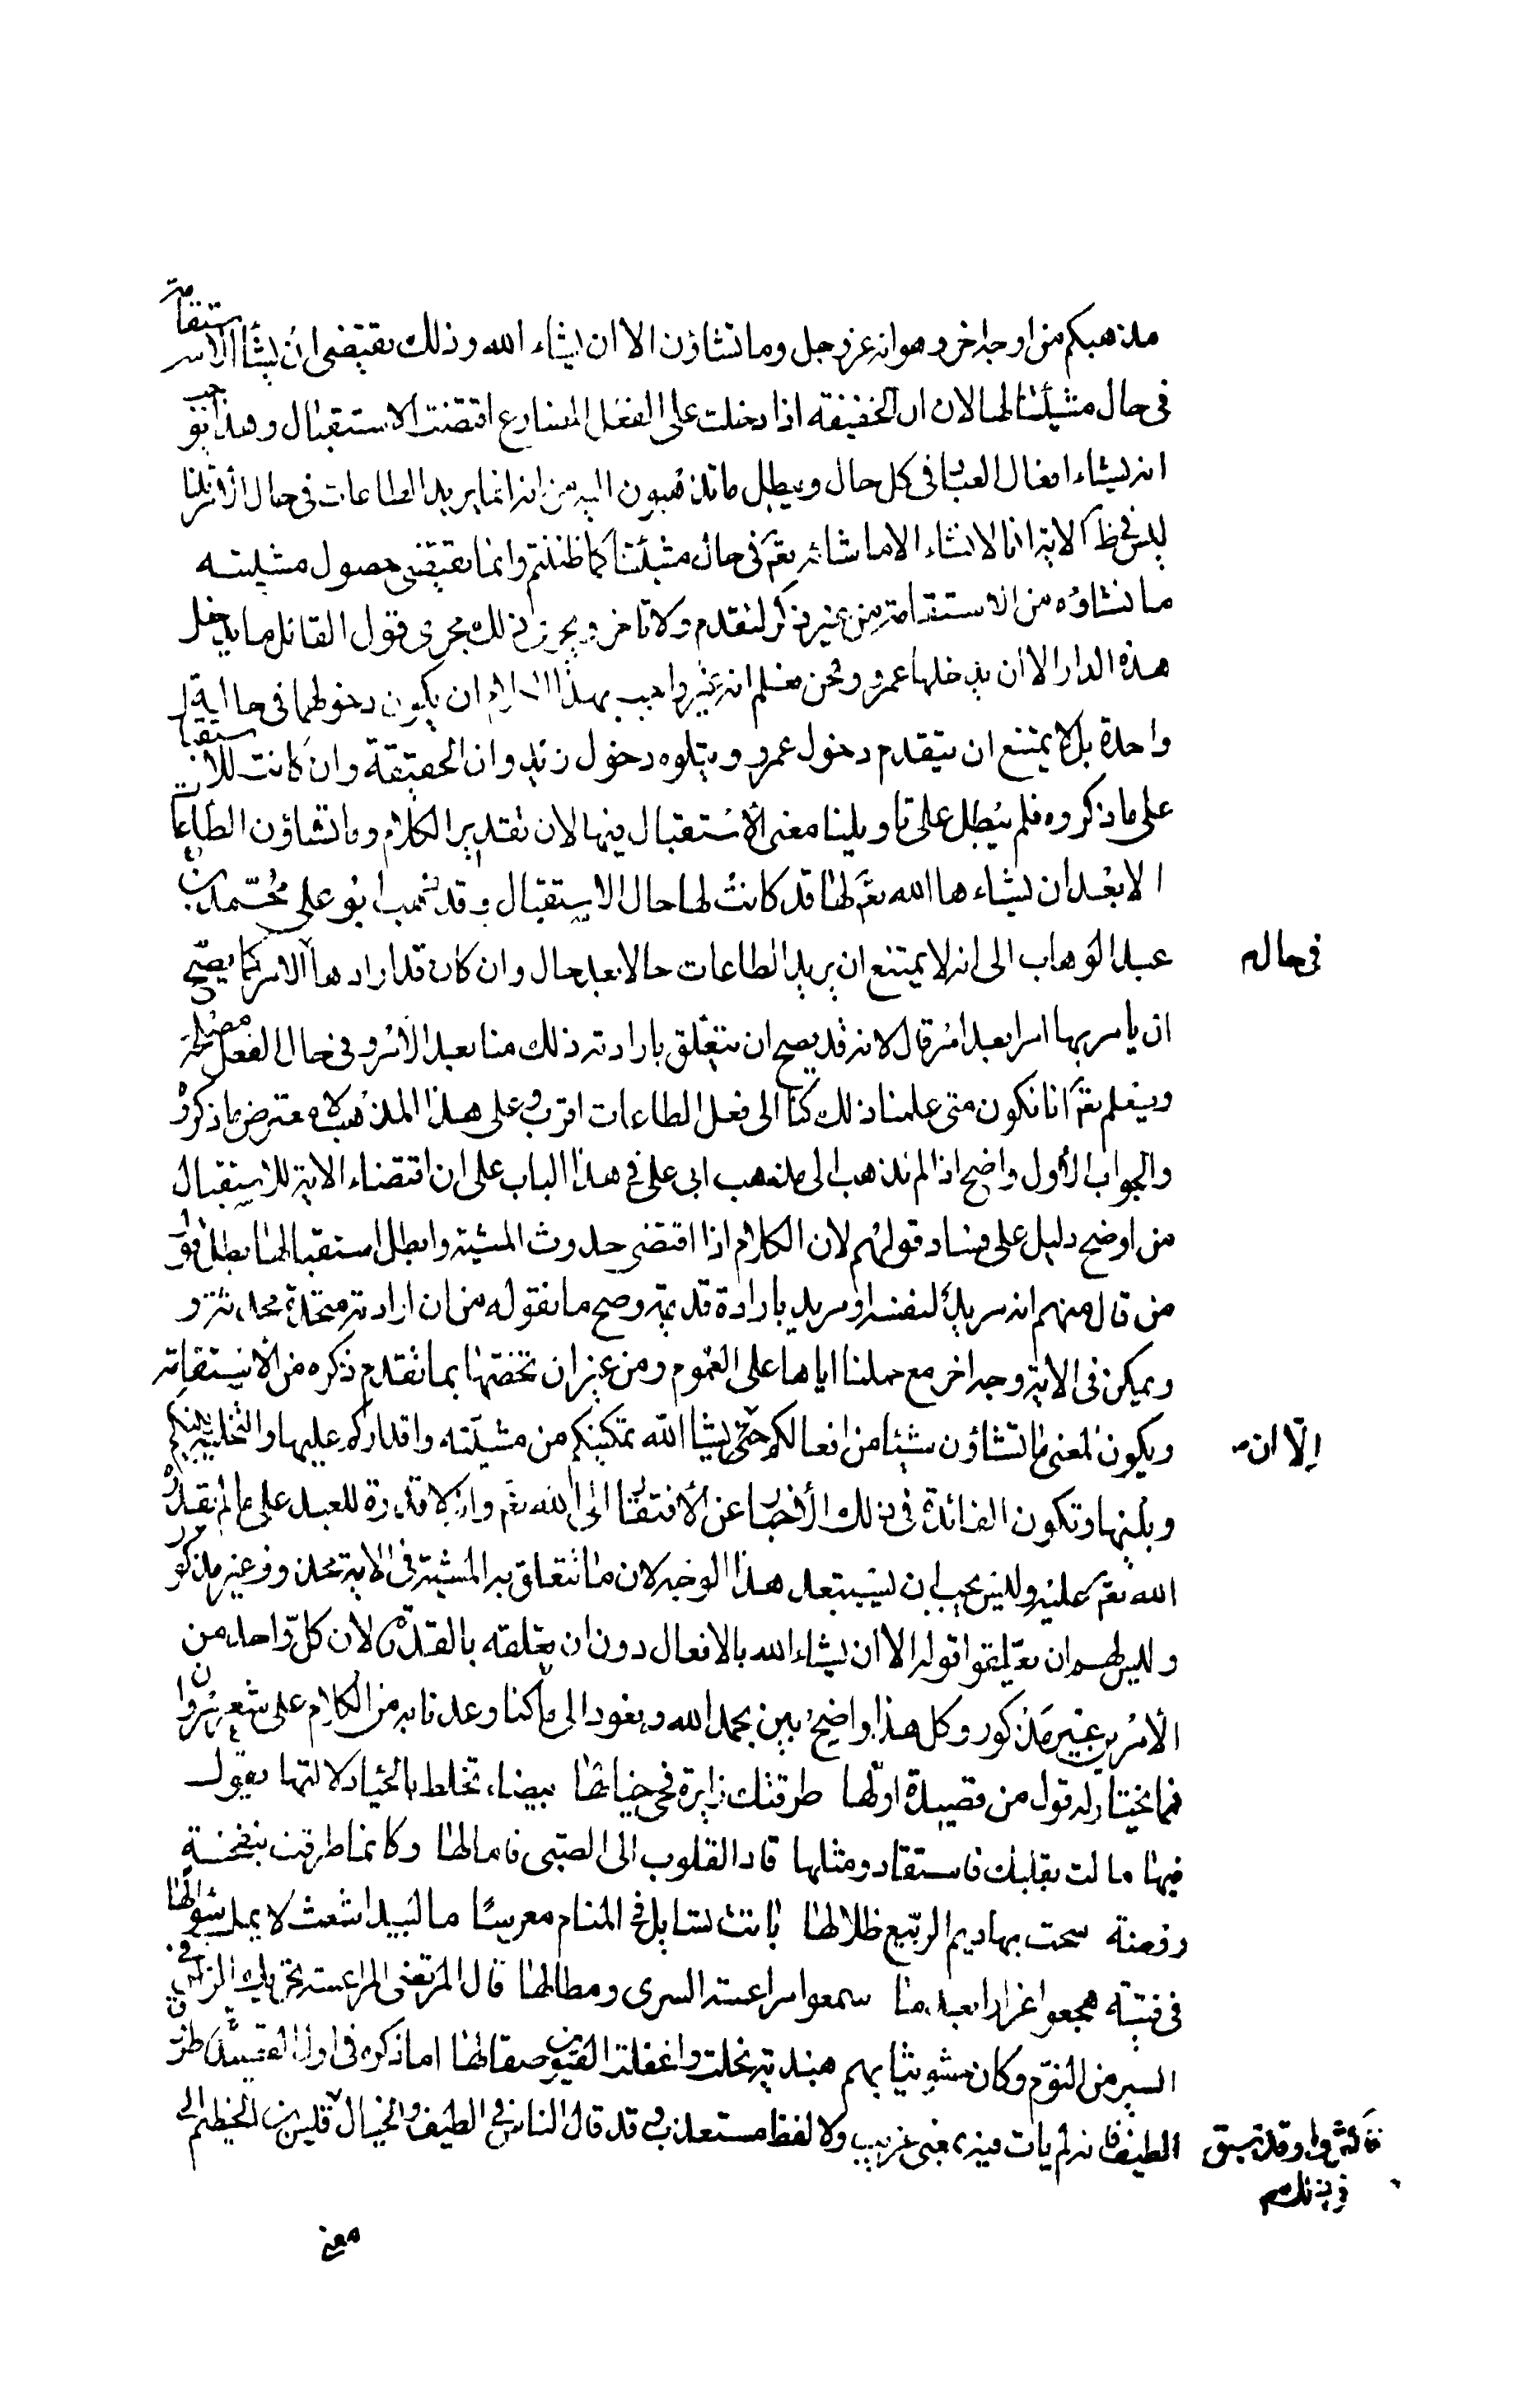 مذهبكم من اوجه اخر وهو انه عز وجل وما تشاؤن الا ان يشاء الله وذلك يقتضى ان يشأ الاستقامة
فى حال مشيئتنا لها لان ان الخفيفة اذا دخلت على الفعل المضارع اقتضت الاستقبال وهذا يوجب
انه يشاء افعال العباد فى كل حال ويبطل ما تذهبون اليه من انه انما يريد الطاعات فى حال الامر قلنا
ليس فى ظ الاية انا لا نشاء الا ما شائه تعم فى حال مشيئتنا كما ظننتم وانما يقتضى حصول مشيئته
ما نشاؤه من الاستقامة من غير ذكر لتقدم ولا تاخر ويجرى ذلك مجرى قول القائل ما يدخل
هذه الدار الا ان يدخلها عمرو ونحن نعلم انه غير واجب بهذا الكلام ان يكون دخولهما فى حالة
واحدة بل لا يمتنع ان يتقدم دخول عمرو ويتلوه دخول زيد وان الخفيفة وان كانت للاستقبال
على ما ذكروه فلم يبطل على تاويلنا معنى الاستقبال فيها لان تقدير الكلام وما تشاؤن الطاعات
الا بعد ان يشاء ها الله تعم لها قد كانت لها حال الاستقبال وقد ذهب ابو على محمد بن
عبد الوهاب الى انه لا يمتنع ان يريد الطاعات حالا بعد حال وان كان قد ارادها الامر كما يصح
فى حال
ان يامر بها امرا بعد امر قال لانه قد يصح ان يتعلق بارادته ذلك منا بعد الامر وفى حال الفعل مصلحة
ويعلم تعم انا نكون متى علمنا ذلك كنا الى فعل الطاعات اقرب وعلى هذا المذهب لا يعترض ما ذكروه
والجواب الأول واضح اذا لم نذهب الى مذهب ابى على فى هذا الباب على ان اقتضاء الاية للاستقبال
من اوضح دليل على فساد قولهم لان الكلام اذا اقتضى حدوث المشية وابطل استقبالها بطل قول
من قال منهم انه مريد لنفسه او مريد بارادة قديمة وصح ما نقوله من ان ارادته متجددة محدثة و
ويمكن فى الاية وجه اخر مع حملنا اياها على العموم ومن غير ان نخصها بما تقدم ذكره من الاستقامة
ويكون المعنى ما تشاؤن شيئا من افعالكم حتى يشأ الله تمكينكم من مشيئته واقداركم عليها والتخلية بينكم
الّا ان
وبينها وتكون الفائدة فى ذلك الأخبار عن الأفتقار الى الله تعم وانه لا قدرة للعبد على ما لم يقدره
الله تعم عليه وليس يجب ان يستبعد هذا الوجه لان ما تتعلق به المشية فى الاية محذوف غير مذكور
وليس لهم ان يعلقوا قوله الا ان يشاء الله بالافعال دون ان يعلقه بالقدرة لان كل واحد من
الأمرين غير مذكور وكل هذا واضح بين بحمد الله ونعود الى ما كنا وعدنا به من الكلام على شعر مروان
فما يختار له قول من قصيدة اولها طرقتك زايرة فحى خيالها بيضاء تخلط بالحياء دلالتها يقول
فيها مالت بقلبك فاستقاد ومثلها قاد القلوب الى الصبى فامالها وكانما طرقت بنفحة
روضة سحت بها ديم الربيع ظلالها باتت تسايل فى المنام معرسا مالبيد اشعث لا يمل سؤالها
فى فتية هجعوا غرارا بعد ما سمعوا مراعشة السرى ومطالها قال المرتضى المراعشة تحريك الراس فى
السير من النوم وكان حشو ثيابهم هندية نحلت واغفلت القيون صقالها اما ذكره فى اول القصيدة طروق
الطيف فانه لم يات فيه بمعنى غريب ولا لفظ مستعذب وقد قال الناس فى الطيف والخيال قليس بن الخطيم الى
فاكثروا وقد سبق
فى ذلك
معنى